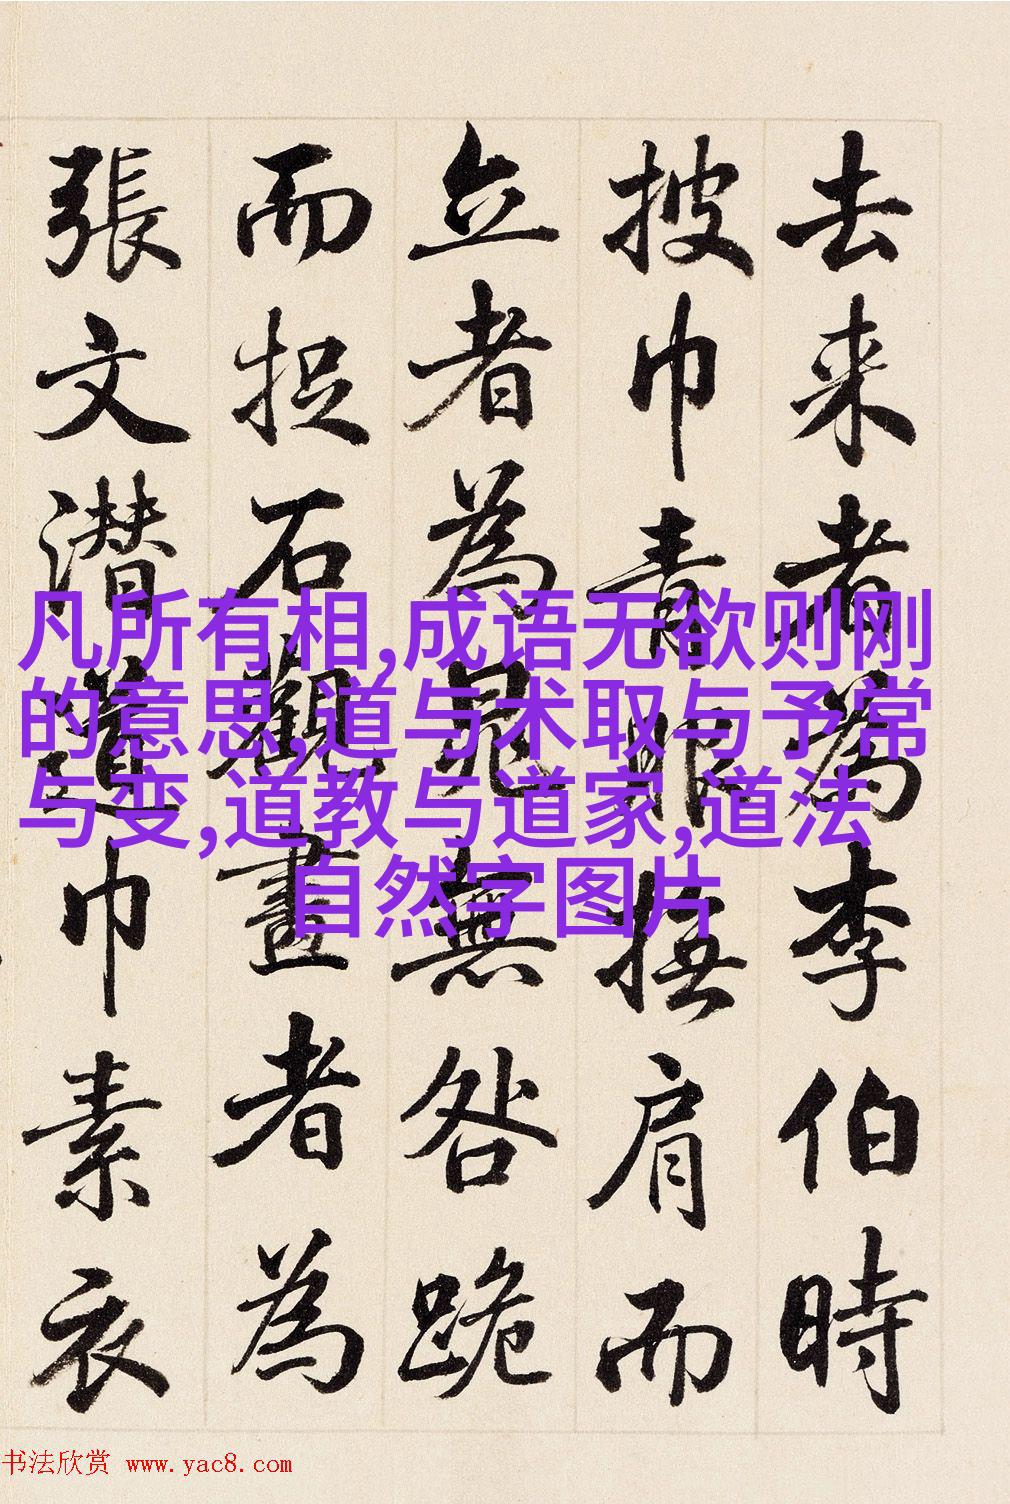 去来者為李伯時
披巾青服撫肩而
立者為晁無咎跪
而捉石觀畫者為
張文潜道巾素衣
凡所有相,成语无欲则刚
的意思,道与术取与予常
与变,道教与道家,道法
自然字图片
书法欣赏 www.yac8.com